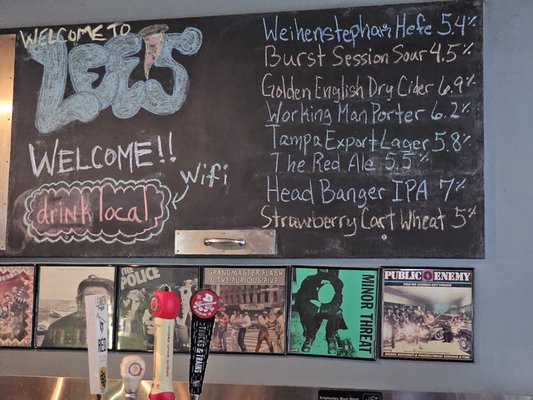 WELCOME TO
LEE'S
WELCOME!!
Wifi
drink local
Weihenstephan Hefe 5.4%
Burst Session Sour 4.5%
Golden English Dry Cider 6.9%
Working Man Porter 6.2%
Tampa Export Lager 5.8%
The Red Ale 5.5%
Head Banger IPA 7%
Strawberry Cart Wheat 5%
THE POLICE
GRANDMASTER FLASH
& THE FURIOUS FIVE
MINOR THREAT
PUBLIC ENEMY
TRUCKS & TRAINS